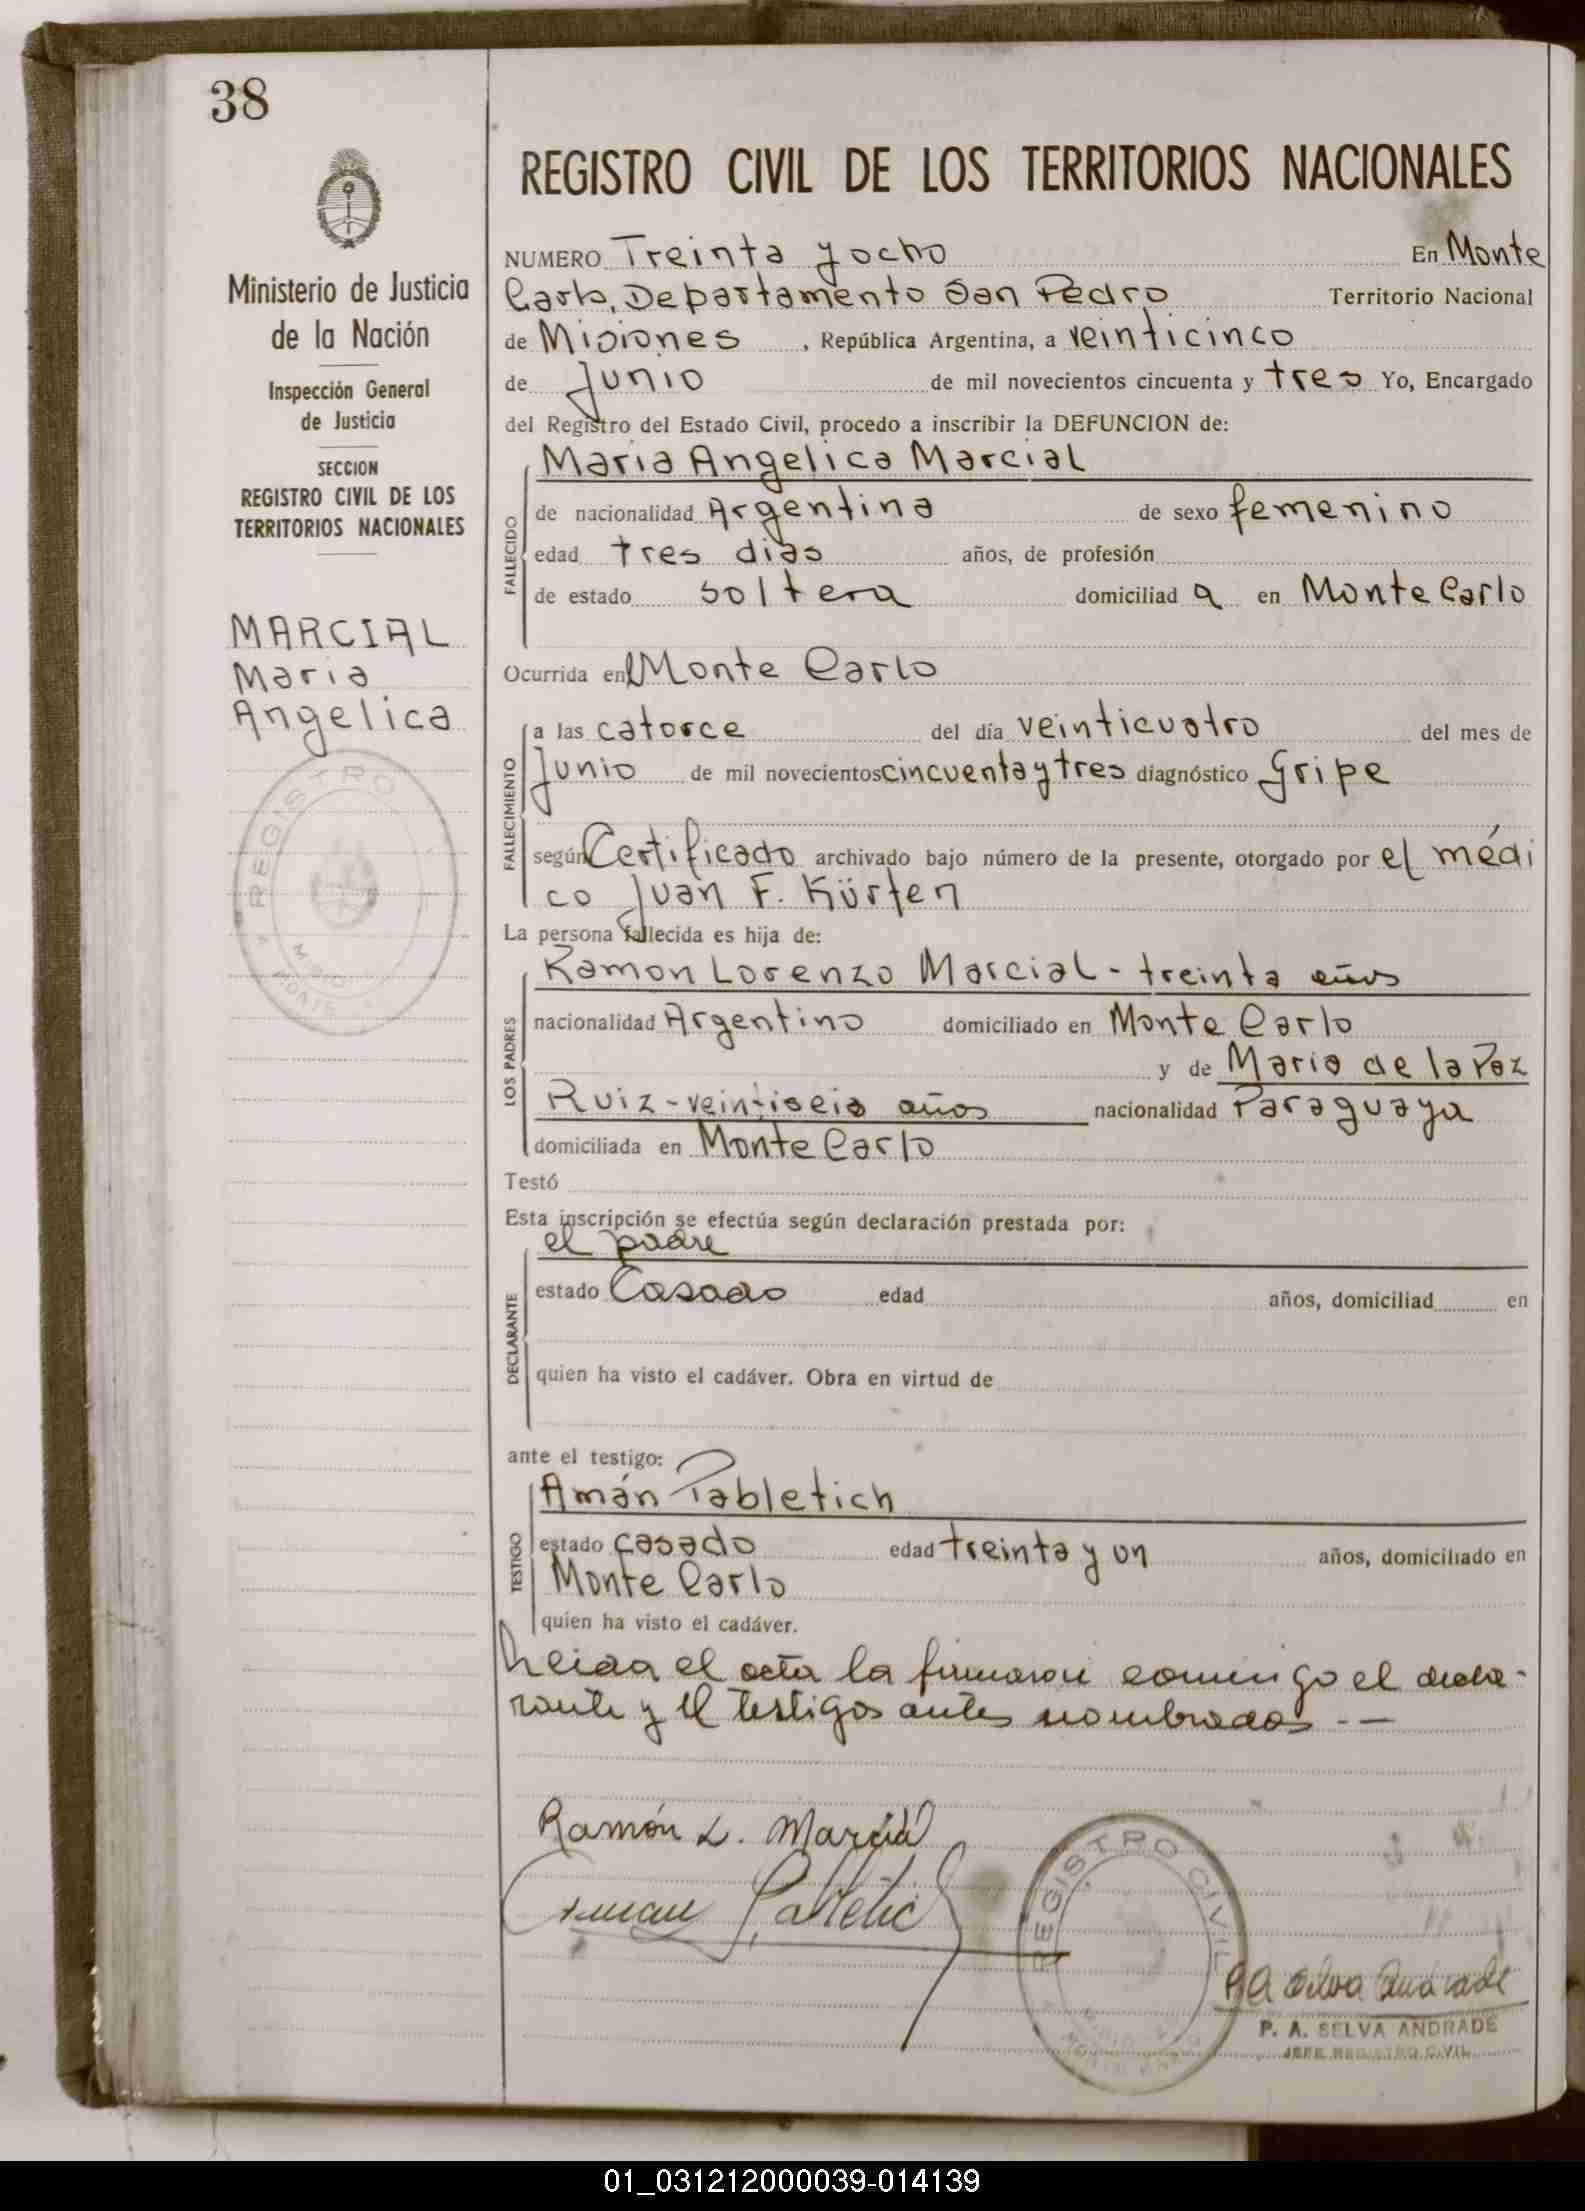 38
Ministerio de Justicia
de la Nación
Inspección General
de Justicia
SECCION
REGISTRO CIVIL DE LOS
TERRITORIOS NACIONALES
MARCIAL
Maria
Angelica
REGISTRO
MONTE
REGISTRO CIVIL DE LOS TERRITORIOS NACIONALES
NUMERO Treinta y ocho En Monte
Carlo, Departamento San Pedro Territorio Nacional
de Misiones , República Argentina, a veinticinco
de Junio de mil novecientos cincuenta y tres Yo, Encargado
del Registro del Estado Civil, procedo a inscribir la DEFUNCION de:
FALLECIDO
Maria Angelica Marcial
de nacionalidad Argentina de sexo femenino
edad tres dias años, de profesión
de estado soltera domiciliad a en Monte Carlo
Ocurrida en Monte Carlo
FALLECIMIENTO
a las catorce del día veinticuatro del mes de
Junio de mil novecientos cincuenta y tres diagnóstico Gripe
según Certificado archivado bajo número de la presente, otorgado por el médi
co Juan F. Kürten
La persona fallecida es hija de:
LOS PADRES
Ramon Lorenzo Marcial - treinta años
nacionalidad Argentino domiciliado en Monte Carlo
y de Maria de la Paz
Ruiz - veintiseis años nacionalidad Paraguaya
domiciliada en Monte Carlo
Testó
Esta inscripción se efectúa según declaración prestada por:
DECLARANTE
el padre
estado Casado edad años, domiciliad en
quien ha visto el cadáver. Obra en virtud de
ante el testigo:
TESTIGO
Amán Pabletich
estado casado edad treinta y un años, domiciliado en
Monte Carlo
quien ha visto el cadáver.
Leida el acta la firmaron conmigo el decla-
rante y el testigos antes nombrados - —
Ramón L. Marcial
REGISTRO CIVIL
MONTE CARLO
P A Selva Andrade
P. A. SELVA ANDRADE
JEFE REGISTRO CIVIL
01_031212000039-014139